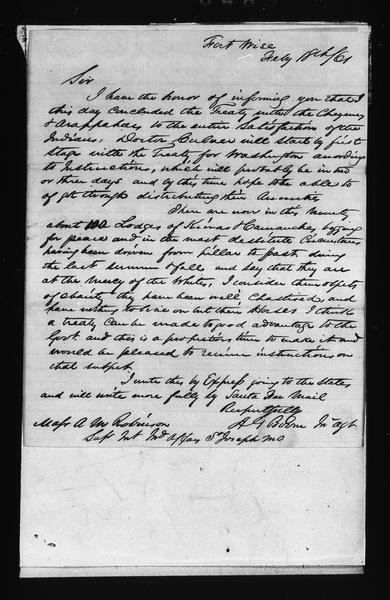 Fort Wise
Feby 18th/61
Sir
I have the honor of informing you that I
this day concluded the Treaty with the Cheyennes
& Arappahoes to the entire Satisfaction of the
Indians, Doctor will start by first
stage with the treaty for Washington according
to Instructions, which will probably be in two
or three days and by this time hope to be able to
get through distributing their Annuities
There are now in this vicinity
about 100 Lodges of Kiowas & Camanches, begging
for peace and in the most destitute Circumstances
having been driven from pillar to post during
the last summer & fall and say that they are
at the mercy of the Whites, I consider them objects
of charity they have been well Chastised, and
have nothing to live on but their Horses I think
a treaty can be made to good advantage to the
Govt and this is a propitious time to make it and
would be pleased to receive instructions on
that subjet.
I write this by Express going to the states
and will write more fully by Santa Fee Mail
Respectfully
A G Boone In Agt
Majr A M Robinson
Supt Int Ind Affairs St Joseph Mo